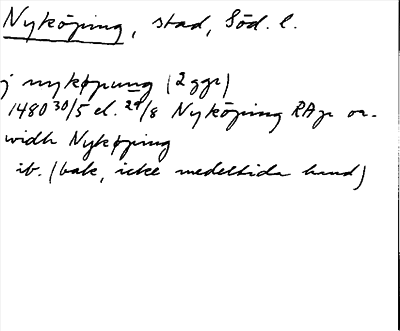 Nyköping, stad, Söd. l.
j nykøpung (2 ggr)
1480 30/5 el. 29/8 Nyköping RAp or.
widh Nyköping
ib. (bak, icke medeltida hand)